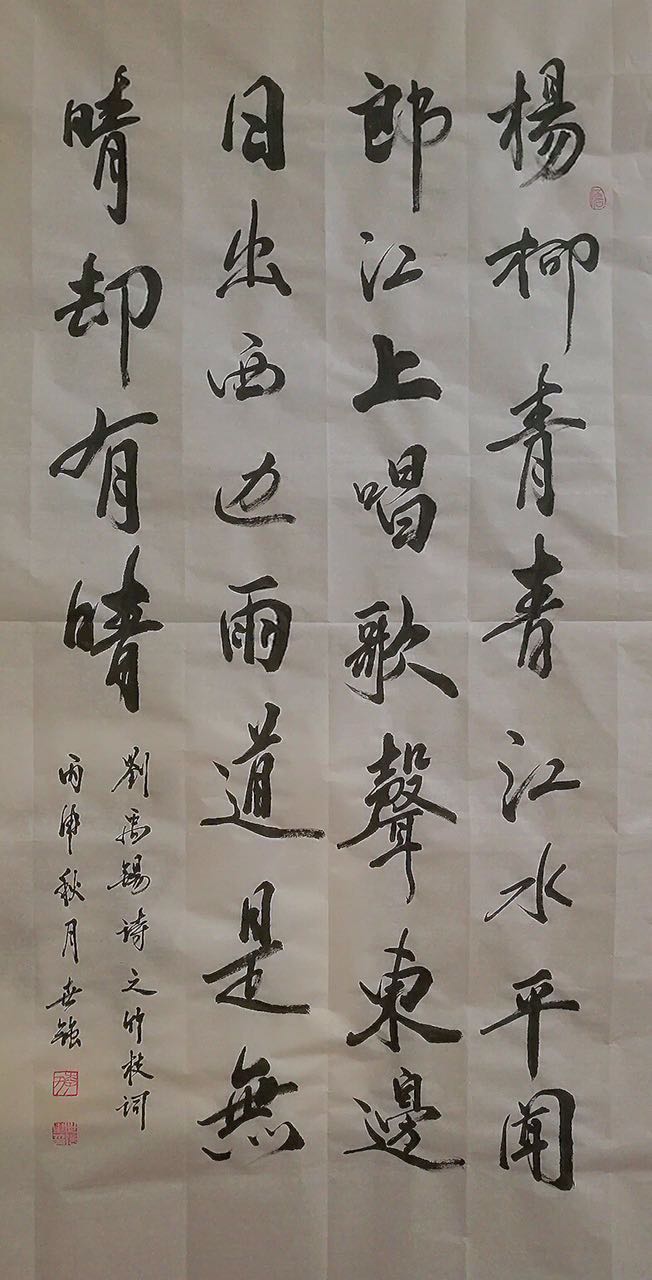 楊柳青青江水平聞
郎江上唱歌聲東邊
日出西边雨道是無
晴却有晴
劉禹錫詩之竹枝词
丙申秋月世強